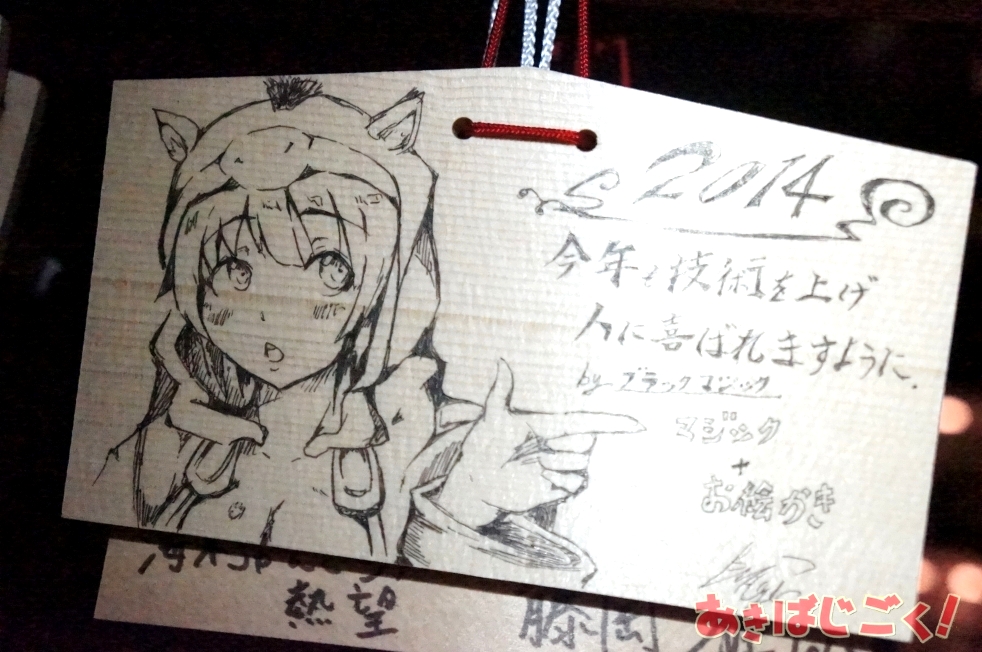 2014
今年も技術を上げ
人に喜ばれますように.
by ブラックマジック
マジック
+
お絵かき
熱望
藤岡
あきばじごく!